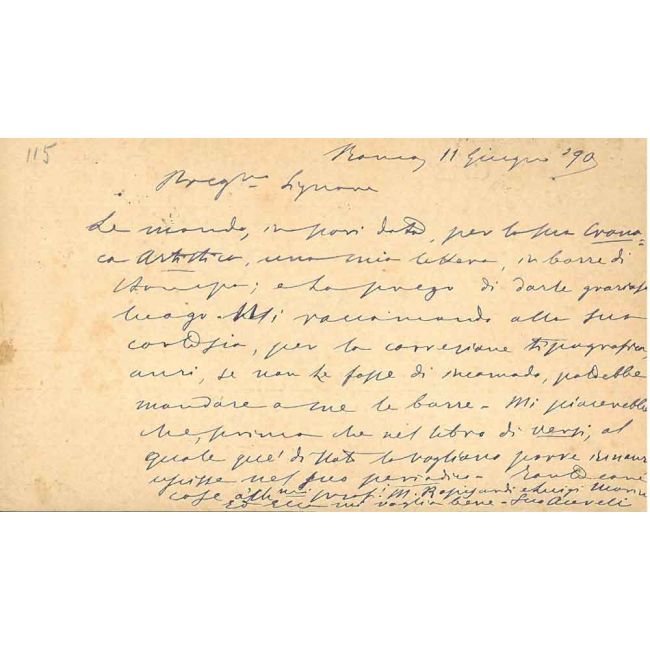 115
Roma, 11 Giugno '90
Preg.mo Signore
Le mando, in pari data, per la sua Crona-
ca Artistica, una mia lettera, in barre di
stampa; e La prego di darle grazioso
luogo. Mi raccomando alla sua
cortesia, per la correzione tipografica,
anzi, se non Le fosse di incomodo, potrebbe
mandare a me le barre. Mi piacerebbe
che, prima che nel libro di versi, al
quale que' di lo vogliano porre innanzi
uscisse nel suo periodico. Tante care
cose prof. M. Rapisardi e Luigi
Ed Ella mi voglia bene. Suo